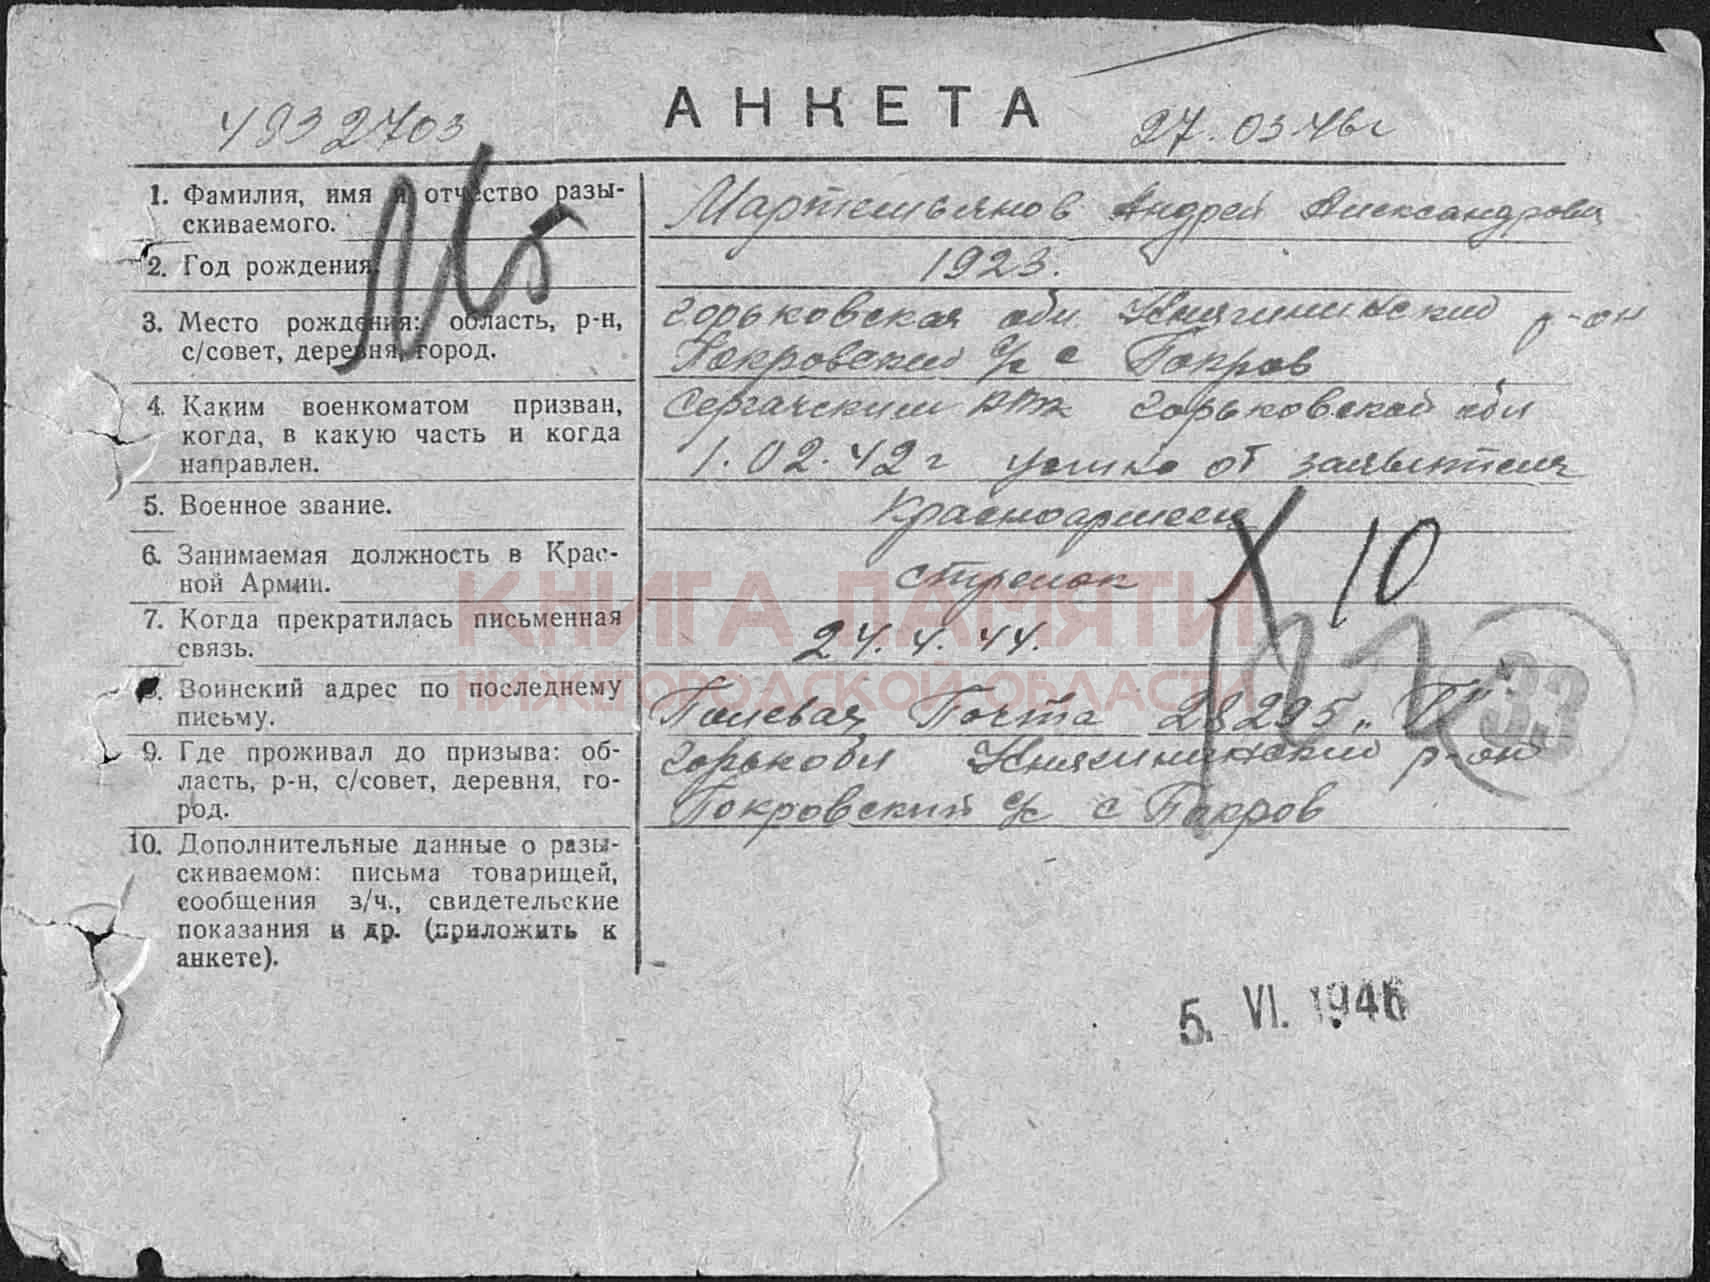 4832703
АНКЕТА
27.03.46г
1. Фамилия, имя и отчество разы-
скиваемого.
Мартемьянов Андрей Александрович
2. Год рождения
1923.
3. Место рождения: область, р-н,
с/совет, деревня, город.
Горьковская обл Княгининский р-он
Покровский с/с с Покров
4. Каким военкоматом призван,
когда, в какую часть и когда
направлен.
Сергачским РВК Горьковской обл
1.02.42г устно от заявителя
5. Военное звание.
Красноармеец
6. Занимаемая должность в Крас-
ной Армии.
стрелок
10
7. Когда прекратилась письменная
связь.
24.4.44.
8. Воинский адрес по последнему
письму.
Полевая Почта 28295 „Т"
33
9. Где проживал до призыва: об-
ласть, р-н, с/совет, деревня, го-
род.
Горьк обл Княгининский р-он
Покровский с/с с Покров
10. Дополнительные данные о разы-
скиваемом: письма товарищей,
сообщения з/ч., свидетельские
показания и др. (приложить к
анкете).
5. VI. 1946
КНИГА ПАМЯТИ
НИЖЕГОРОДСКОЙ ОБЛАСТИ